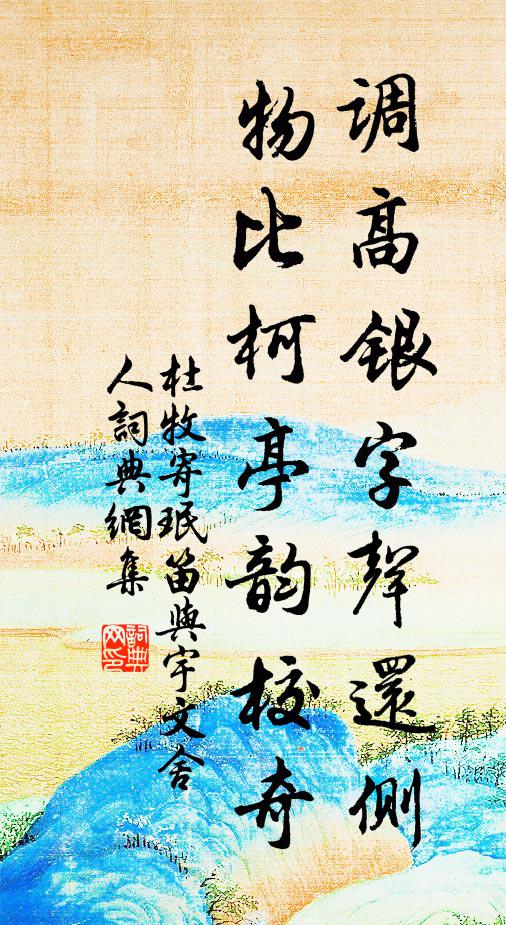 调高銀字聲還側
物比柯亭韵校奇
杜牧寄珉笛與宇文舍
人詞典網集
詞典
网印